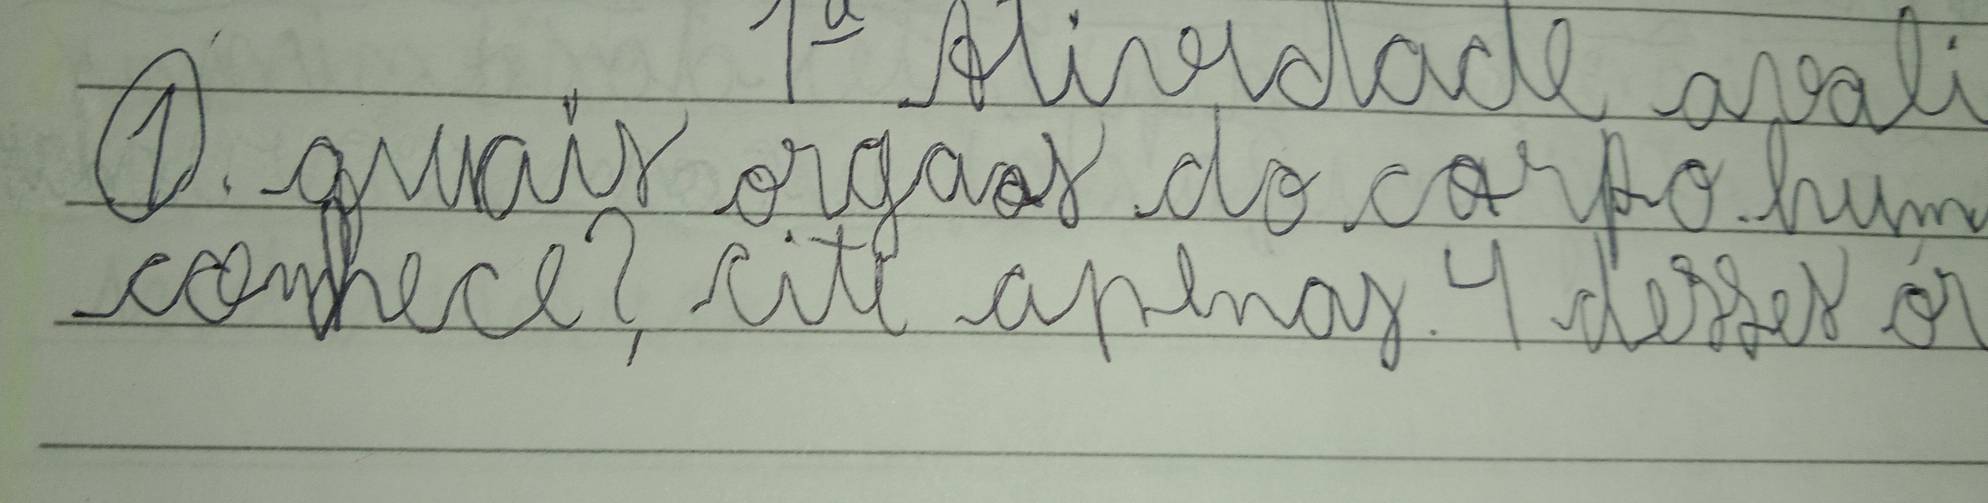 1ª Atividade avali
1. quais orgaos do corpo hum
conhece?, cite apenas 4 desses ór